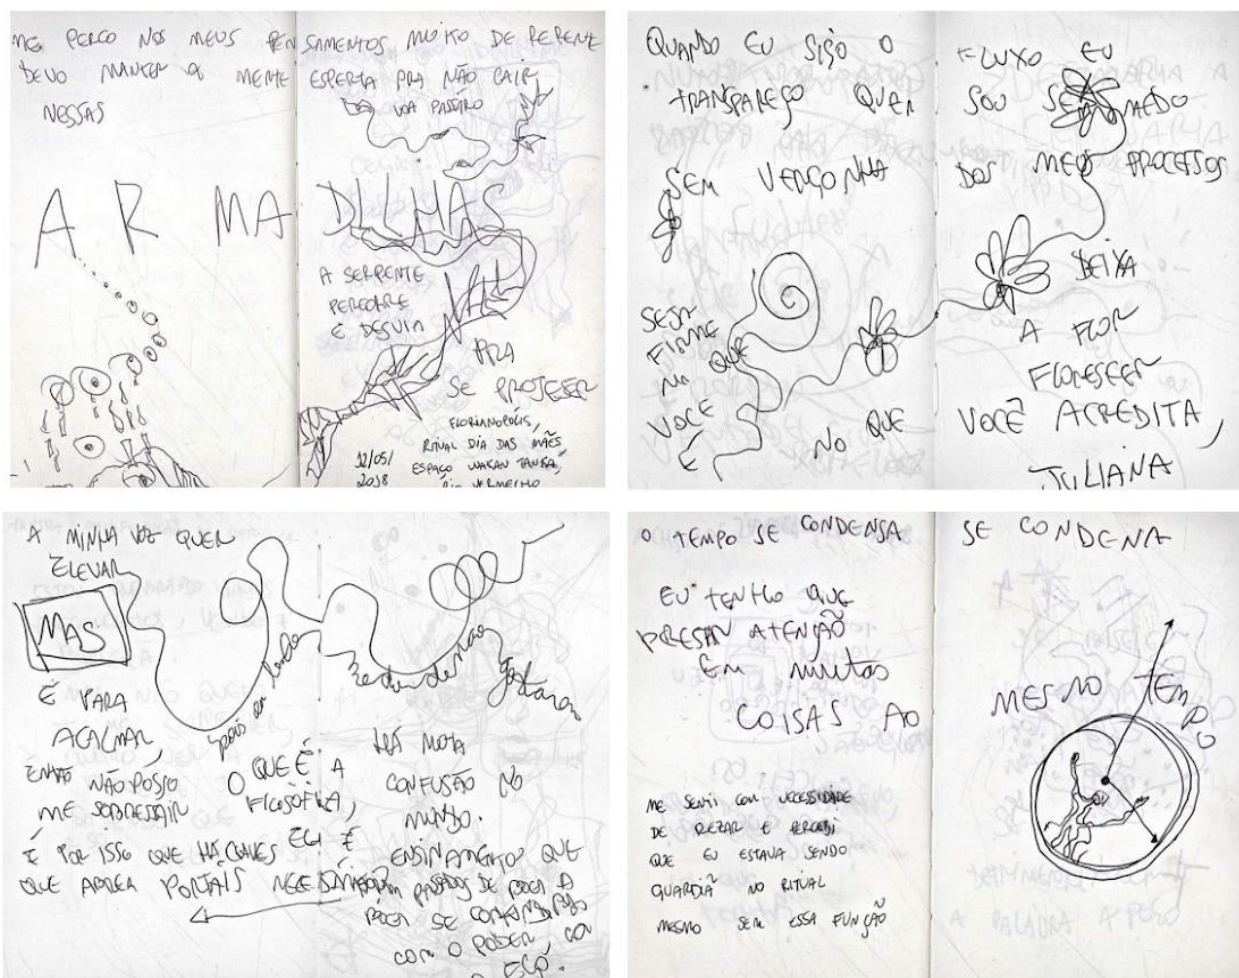 ME PERCO NOS MEUS PENSAMENTOS MUITO DE REPENTE
DEVO MANTER A MENTE ESPERTA PRA NÃO CAIR
NESSAS
VOA PASSÁRO
ARMADILHAS
A SERPENTE
PERCORRE
E DESVIA
VAI
PRA
SE PROTEGER
FLORIANOPÓLIS,
RITUAL DIA DAS MÃES
12/05/
2018
ESPAÇO WAKAN TANKA,
RIO VERMELHO
QUANDO EU SIGO O FLUXO EU
TRANSPAREÇO QUEM SOU SEM MEDO
SEM VERGONHA DOS MEUS PROCESSOS
DEIXA
A FLOR
FLORESCER
SEJA
FIRME
NO QUE
VOCE
É
NO QUE VOCÊ ACREDITA,
JULIANA
A MINHA VOZ QUER
ELEVAR
MAS
É PARA
ACALMAR,
ENTÃO NÃO POSSO
ME SOBRESSAIR
É POR ISSO QUE HÁ CHAVES
QUE ABREM PORTAIS NECESSÁRIOS
pois em
O QUE É A
FILOSOFIA,
EU E
HÁ MUITA
CONFUSÃO NO
MUNDO.
ENSINAMENTOS QUE
PASSADOS DE BOCA A
SE
COM O PODER, COM
O EGO.
O TEMPO SE CONDENSA SE CONDENA
EU TENHO QUE
PRESTAR ATENÇÃO
EM muitas
COISAS AO MESMO TEMPO
ME SENTI COM NECESSIDADE
DE REZAR E PERCEBI
QUE EU ESTAVA SENDO
GUARDIÃ NO RITUAL
MESMO SEM ESSA FUNÇÃO